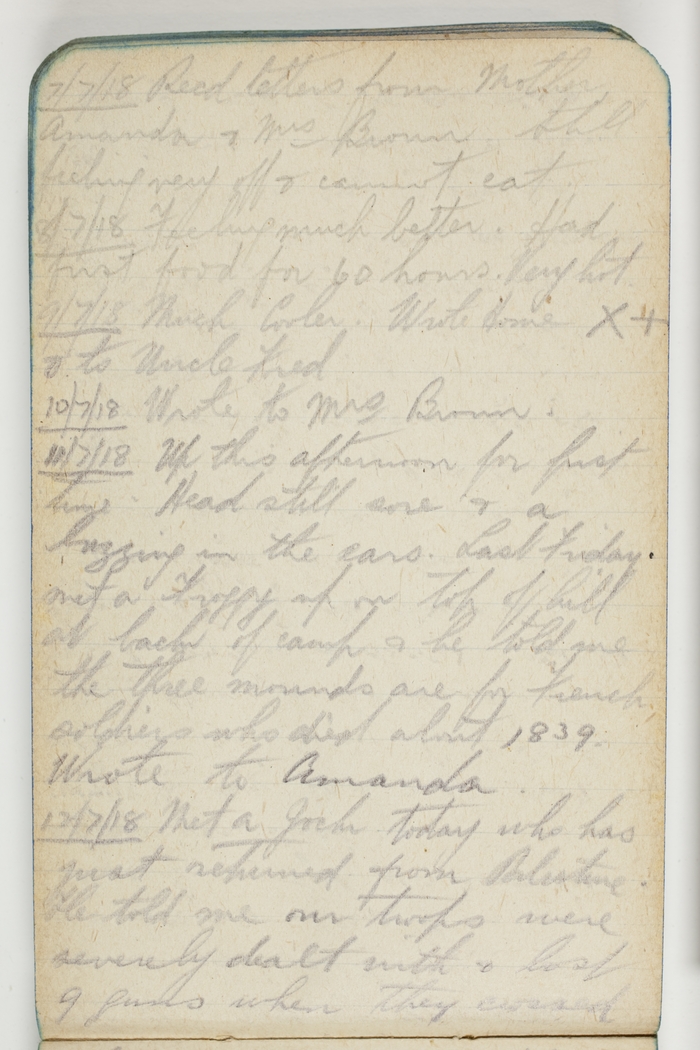 7/7/18 Recd letters from Mother,
Amanda & Mrs Brown Still
feeling very off & cannot eat
8/7/18 Feeling much better. Had
first food for 60 hours. Very hot
9/7/18 Much Cooler. Wrote Home X +
& to Uncle Fred
10/7/18 Wrote to Mrs Brown.
11/7/18 Up this afternoon for first
time. Head still sore & a
buzzing in the ears. Last Friday
met a Froggy up on top of hill
at back of camp & he told me
the three mounds are for French
soldiers who died about 1839.
Wrote to Amanda.
12/7/18 Met a Jock today who has
just returned from Palestine.
He told me our troops were
severely dealt with & lost
9 guns when they crossed